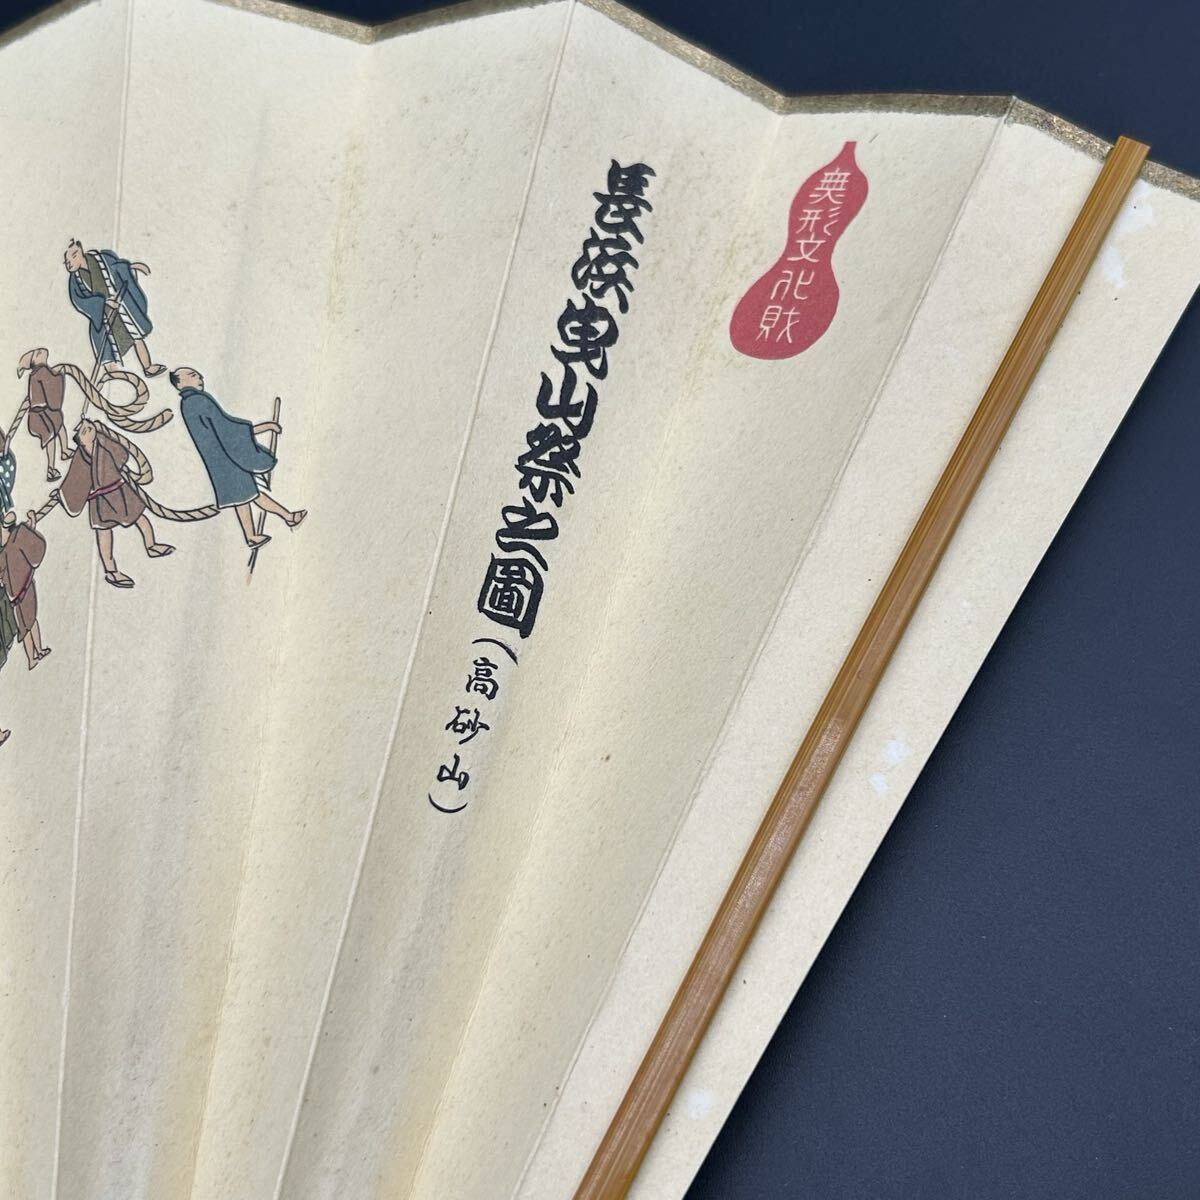 無形文化財
長浜曳山祭之圖
(高砂山)